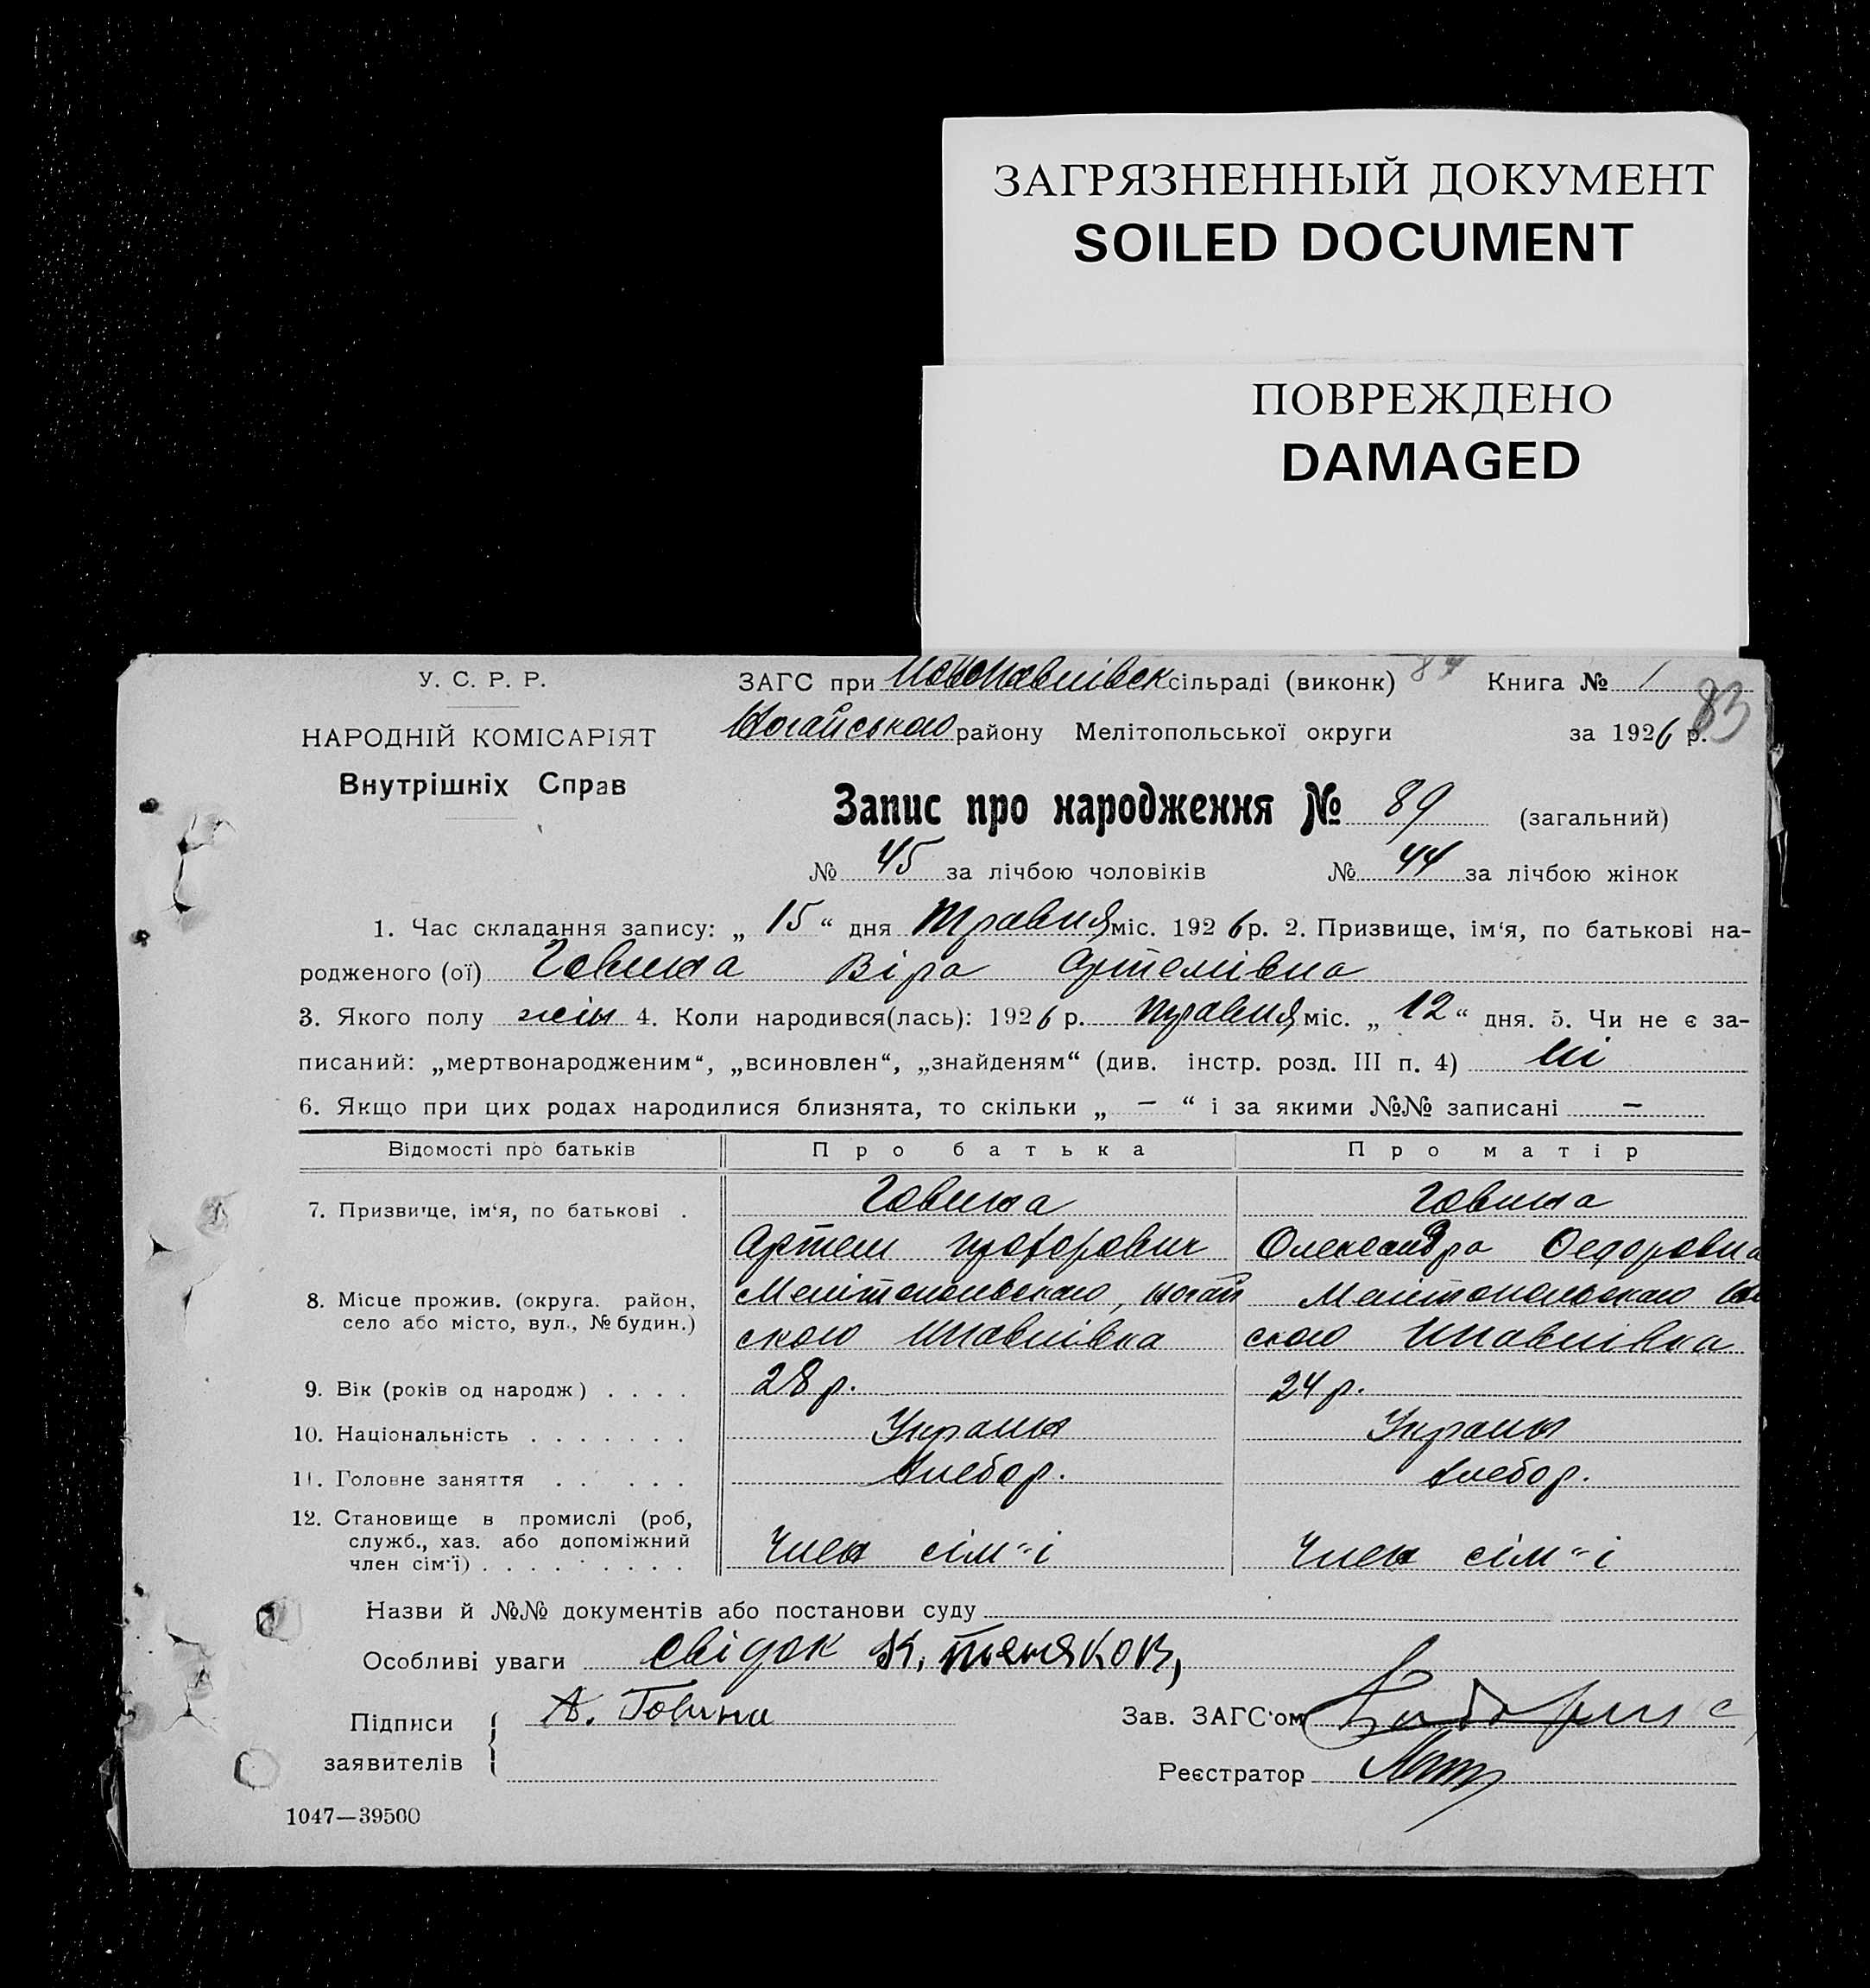 ЗАГРЯЗНЕННЫЙ ДОКУМЕНТ
SOILED DOCUMENT
ПОВРЕЖДЕНО
DAMAGED
У. С. Р. Р.
НАРОДНІЙ КОМІСАРІЯТ
Внутрішніх Справ
ЗАГС при Новопавлівск сільраді (виконк) Книга № 1
83
Ногайського району Мелітопольської округи за 1926 р.
Запис про народження № 89 (загальний)
№ 45 за лічбою чоловіків № 44 за лічбою жінок
1. Час складання запису: „ 15 “ дня травня міс. 1926 р. 2. Призвище, ім‘я, по батькові на-
родженого (ої) Говина Віра Артемівна
3. Якого полу жін 4. Коли народився(лась): 1926 р. травня міс. „ 12 “ дня. 5. Чи не є за-
писаний: „мертвонародженим“, „всиновлен“, „знайденям“ (див. інстр. розд. III п. 4) ні
6. Якщо при цих родах народилися близнята, то скільки „ — “ і за якими №№ записані —
Відомості про батьків Про батька Про матір
7. Призвище, ім‘я, по батькові . Говина Говина
Артем Прохорович Олександра Федоровна
8. Місце прожив. (округа. район, Мелітопольського, ногай Мелітопольського
село або місто, вул., № будин.) ського Нпавлівка ського Нпавлівка
9. Вік (років од народж) . . . . 28 р. 24 р.
10. Національність . . . . . . . Украин Украин
11. Головне заняття . . . . . Хлебор. Хлебор.
12. Становище в промислі (роб,
служб., хаз. або допоміжний
член сім‘ї) . . . . . . . . Член сім"і Член сім"і
Назви й №№ документів або постанови суду
Особливі уваги Свідок К.
Підписи
заявителів
А. Говина
Зав. ЗАГС‘ом
Реєстратор
1047—39500